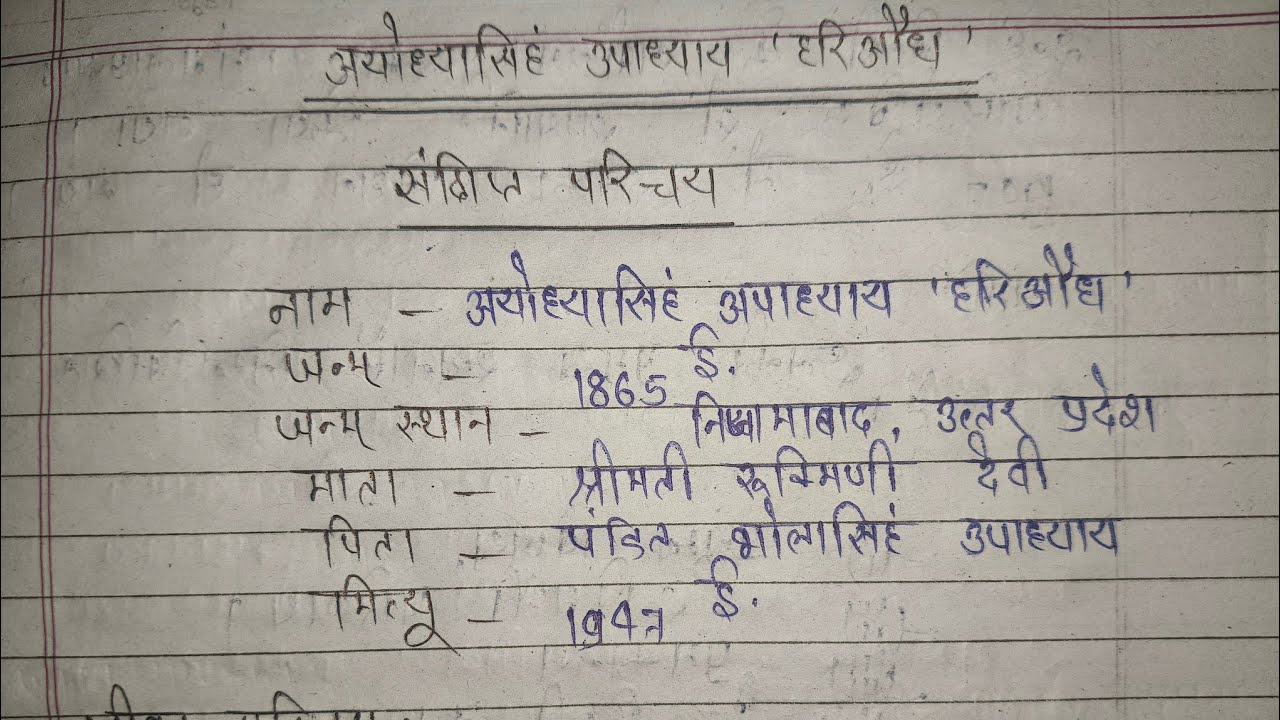 अयोध्यासिहं उपाध्याय 'हरिऔध'
संक्षिप्त परिचय
नाम - अयोध्यासिहं अपाध्याय 'हरिऔध'
जन्म - 1865 ई.
जन्म स्थान - निजामाबाद, उत्तर प्रदेश
माता - श्रीमती रूक्मिणी देवी
पिता - पंडित भोलासिहं उपाध्याय
मित्यू - 1947 ई.